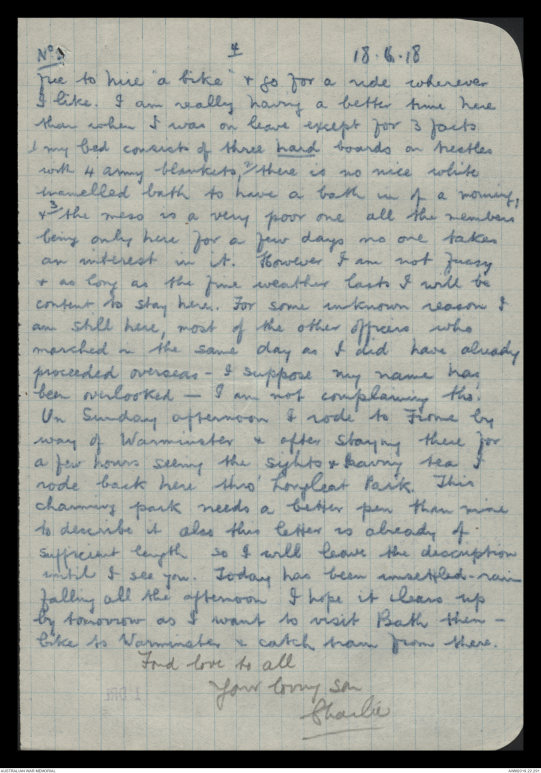 No 3 4 18.6.18
free to hire "a bike" & go for a ride wherever
I like. I am really having a better time here
than when I was on leave except for 3 facts
1 my bed consists of three hard boards on trestles
with 4 army blankets, 2/ there is no nice white
enamelled bath to have a bath in of a morning,
& 3/ the mess is a very poor one all the members
being only here for a few days no one takes
an interest in it. However I am not fussy
& as long as the fine weather lasts I will be
content to stay here. For some unknown reason I
am still here, most of the other officers who
marched in the same day as I did have already
proceeded overseas - I suppose my name has
been overlooked - I am not complaining tho.
On Sunday afternoon I rode to Frome by
way of Warminster & after staying there for
a few hours seeing the sights & having tea I
rode back here thro' Longleat Park. This
charming park needs a better pen than mine
to describe it also this letter is already of
sufficient length so I will leave the description
until I see you. Today has been unsettled - rain
falling all the afternoon I hope it clears up
by tomorrow as I want to visit Bath then -
bike to Warminster & catch train from there.
Fond love to all
Your loving son
Charlie
AUSTRALIAN WAR MEMORIAL